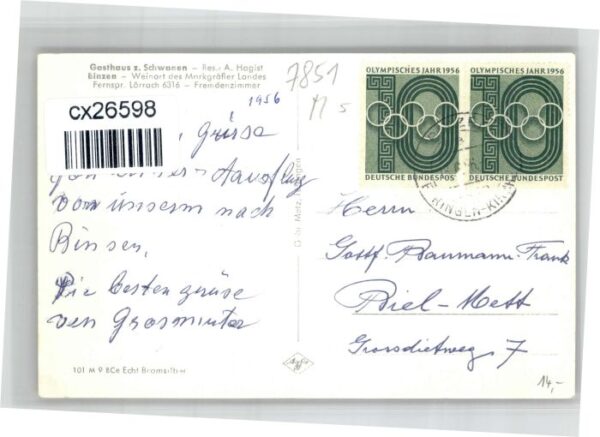 Gasthaus z. Schwanen – Bes.: A. Hagist
Binzen – Weinort des Markgräfler Landes
Fernspr. Lörrach 6316 – Fremdenzimmer
1956
cx26598
Grüsse
Ausflug
von unserm nach
Binsen,
Die besten grüse
von Grosmuter
101 M 9 BCe Echt Bromsilber
Agfa
7851
OLYMPISCHES JAHR 1956
DEUTSCHE BUNDESPOST
OLYMPISCHES JAHR 1956
DEUTSCHE BUNDESPOST
Herrn
Gottf. Baumann-Frank
Biel-Mett
Grossdietweg 7
14,-